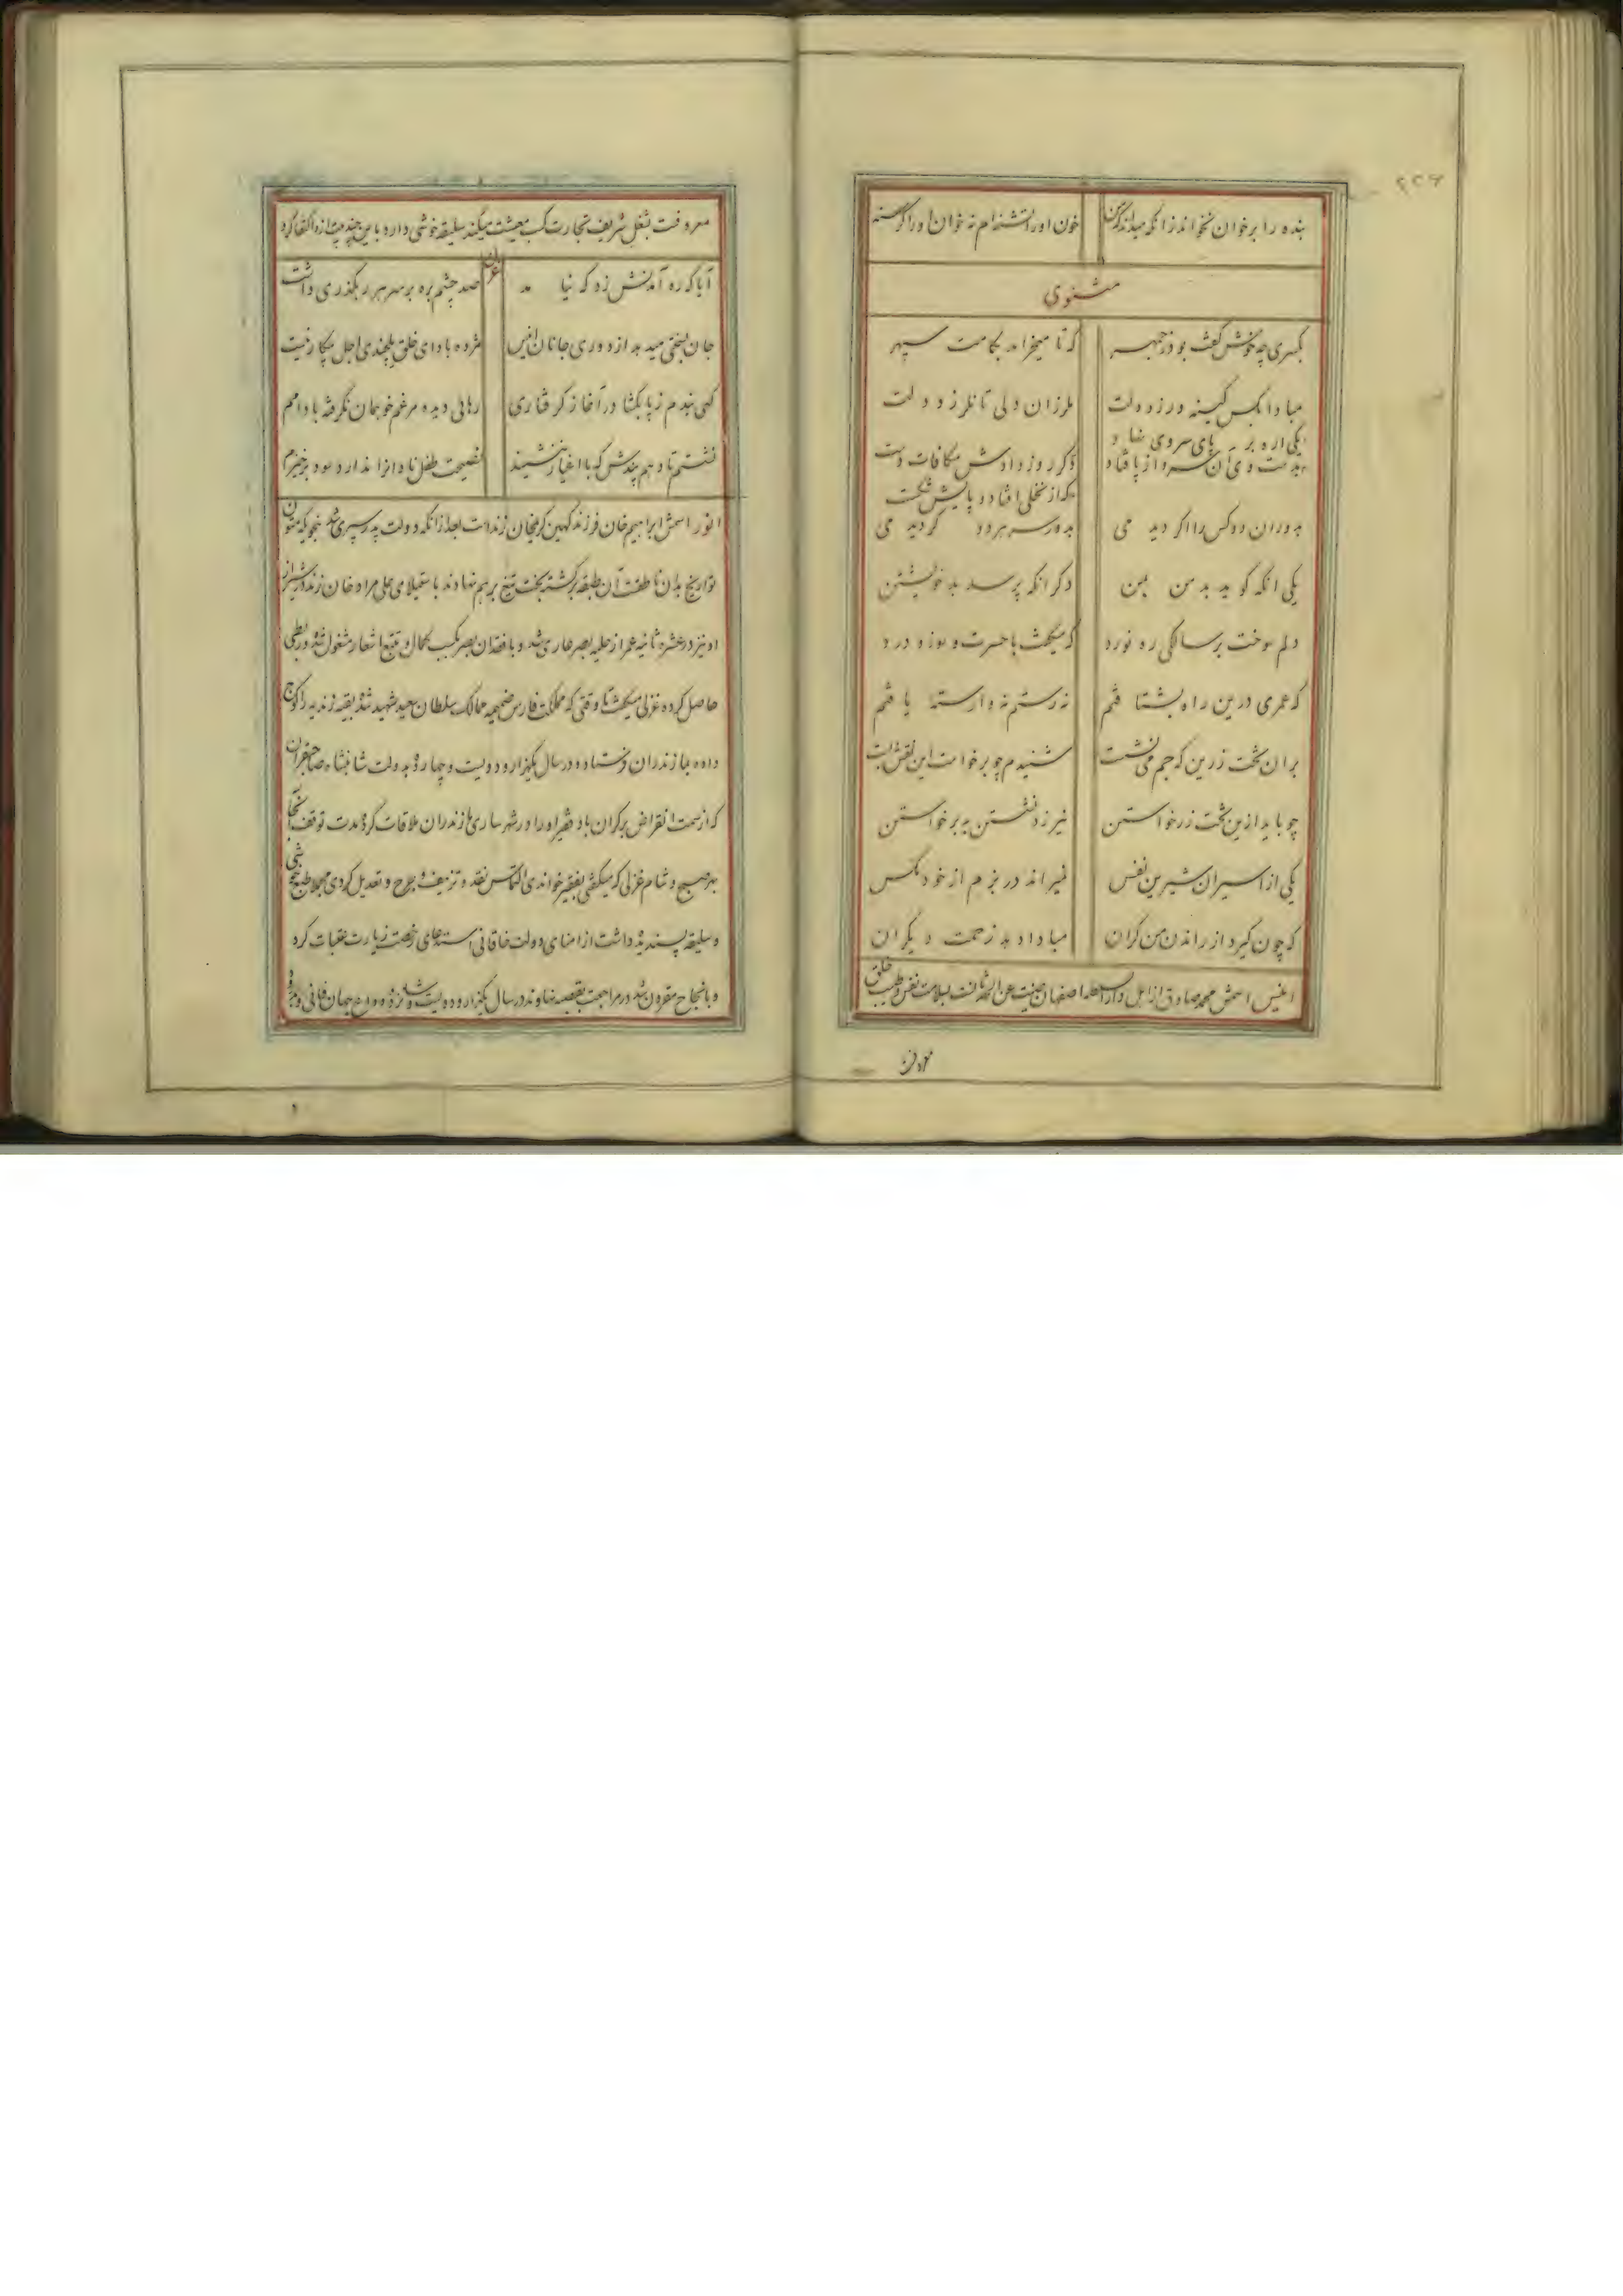 بنده را بر خوان نخواند زانکه میداند که من خون او را تشنه‌ام نه خوان او را گرسنه
مثنوی
بکسری چه خوش گفت بوذرجمهر که تا میخرامد بکامت سپهر
مبادا بکس کینه ورزد دلت بلرزان دلی تا نلرزد دلت
یکی اره بر پای سروی نهاد
بدست وی آن سرو از پا فتاد دگر روز دادش مکافات دست
که از نخلی افتاد و پایش شکست
بدوران دو کس را اگر دیدمی بدور سر هر دو گردیدمی
یکی آنکه گوید بد من بمن دگر آنکه پرسد بد خویشتن
دلم سوخت بر سالکی ره نورد که میگفت با حسرت و سوز و درد
که عمری درین راه بشتافتم نه رستم نه وارسته یافتم
بران تخت زرین که جم می نشست شنیدم چو برخاست این نقش بست
چو باید ازین تخت زر خاستن نیرزد نشستن به برخاستن
یکی از اسیران شیرین نفس نمیراند در بزم از خود مگس
که چون گیرد از راندن من کران مبادا دهد زحمت دیگران
انیس اسمش محمد صادق از اهل دار السلطنه اصفهان صینت عن الحدثان است بسلامت نفس و طیب خلق
معروفست
۲۲۶
معروفست بشغل شریف تجارت کسب معیشت میکند سلیقه خوشی دارد باین چند بیت ازو اکتفا کرد
آیا که ره آمدنش زد که نیامد صد چشم بره بر سر هر رهگذری داشت
جان بسختی میدهد از دوری جانان انیس مژده باد ای خلق یکچندی اجل بیکار نیست
کهی بندم ز پا بکشا در آغاز گرفتاری رهائی دیده مرغم خو بمان نگرفته با دامم
نشستم تا دهم پندش که با اغیار ننشیند نصیحت طفل نادان را ندارد سود برخیزم
انور اسمش ابراهیم خان فرزند کهین کریمخان زندست بعد از آنکه دولت پدر سپری شد بنحویکه متون
تواریخ بدان ناطقست آن طبقه برگشته بخت تیغ بر هم نهادند باستیلای علی مراد خان زند در شیراز
او نیز در عشره ثانیه عمر از حلیه بصر عاری شد و با فقدان بصر بکسب کمال و تتبع اشعار مشغول شد و ربطی
حاصل کرده غزلی میگفت تا وقتی که مملکت فارس ضمیمه ممالک سلطان سعید شهید شد بقیه زندیه را کوچ
داده بمازندران فرستاد و در سال یکهزار و دویست و چهارده بدولت شاهنشاه صاحبقران
که از سمت انقراض بر کران باد فقیر او را در شهر ساری مازندران ملاقات کرد مدت توقف آنجا
هر صبح و شام غزلی که میگفتی بفقیر خواندی التماس نقد و تزییف و جرح و تعدیل کردی مجملا طبع خوشی
و سلیقه پسندیده داشت از امنای دولت خاقانی استدعای رخصت زیارت عتبات کرد
و بانجاح مقرون شد در مراجعت بقصبه نهاوند در سال یکهزار و دویست و شانزده وداع جهان فانی